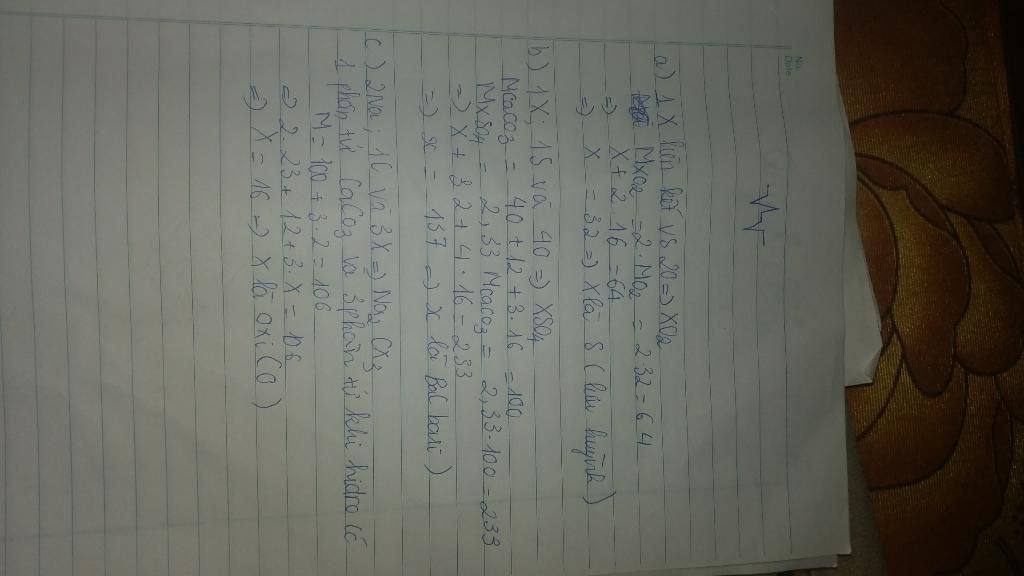 No.
Date
a) 1 X liên kết vs 2O => XO2
MXO2 = 2. MO2 = 2 32 = 64
=> X + 2 16 = 64
=> X = 32 => X là S ( lưu huỳnh )
b) 1X; 1S và 4O => XSO4
MCaCO3 = 40 + 12 + 3.16 = 100
MXSO4 = 2,33 MCaCO3 = 2,33.100 = 233
=> X + 32 + 4.16 = 233
=> x = 137 => X là Ba( bari )
c) 2Na; 1C và 3X => Na2CX3
1 phân tử CaCO3 và 3 phân tử khí hidro có
M = 100 + 3.2 = 106
=> 2 23 + 12 + 3.X = 106
=> X = 16 => X là oxi ( O )